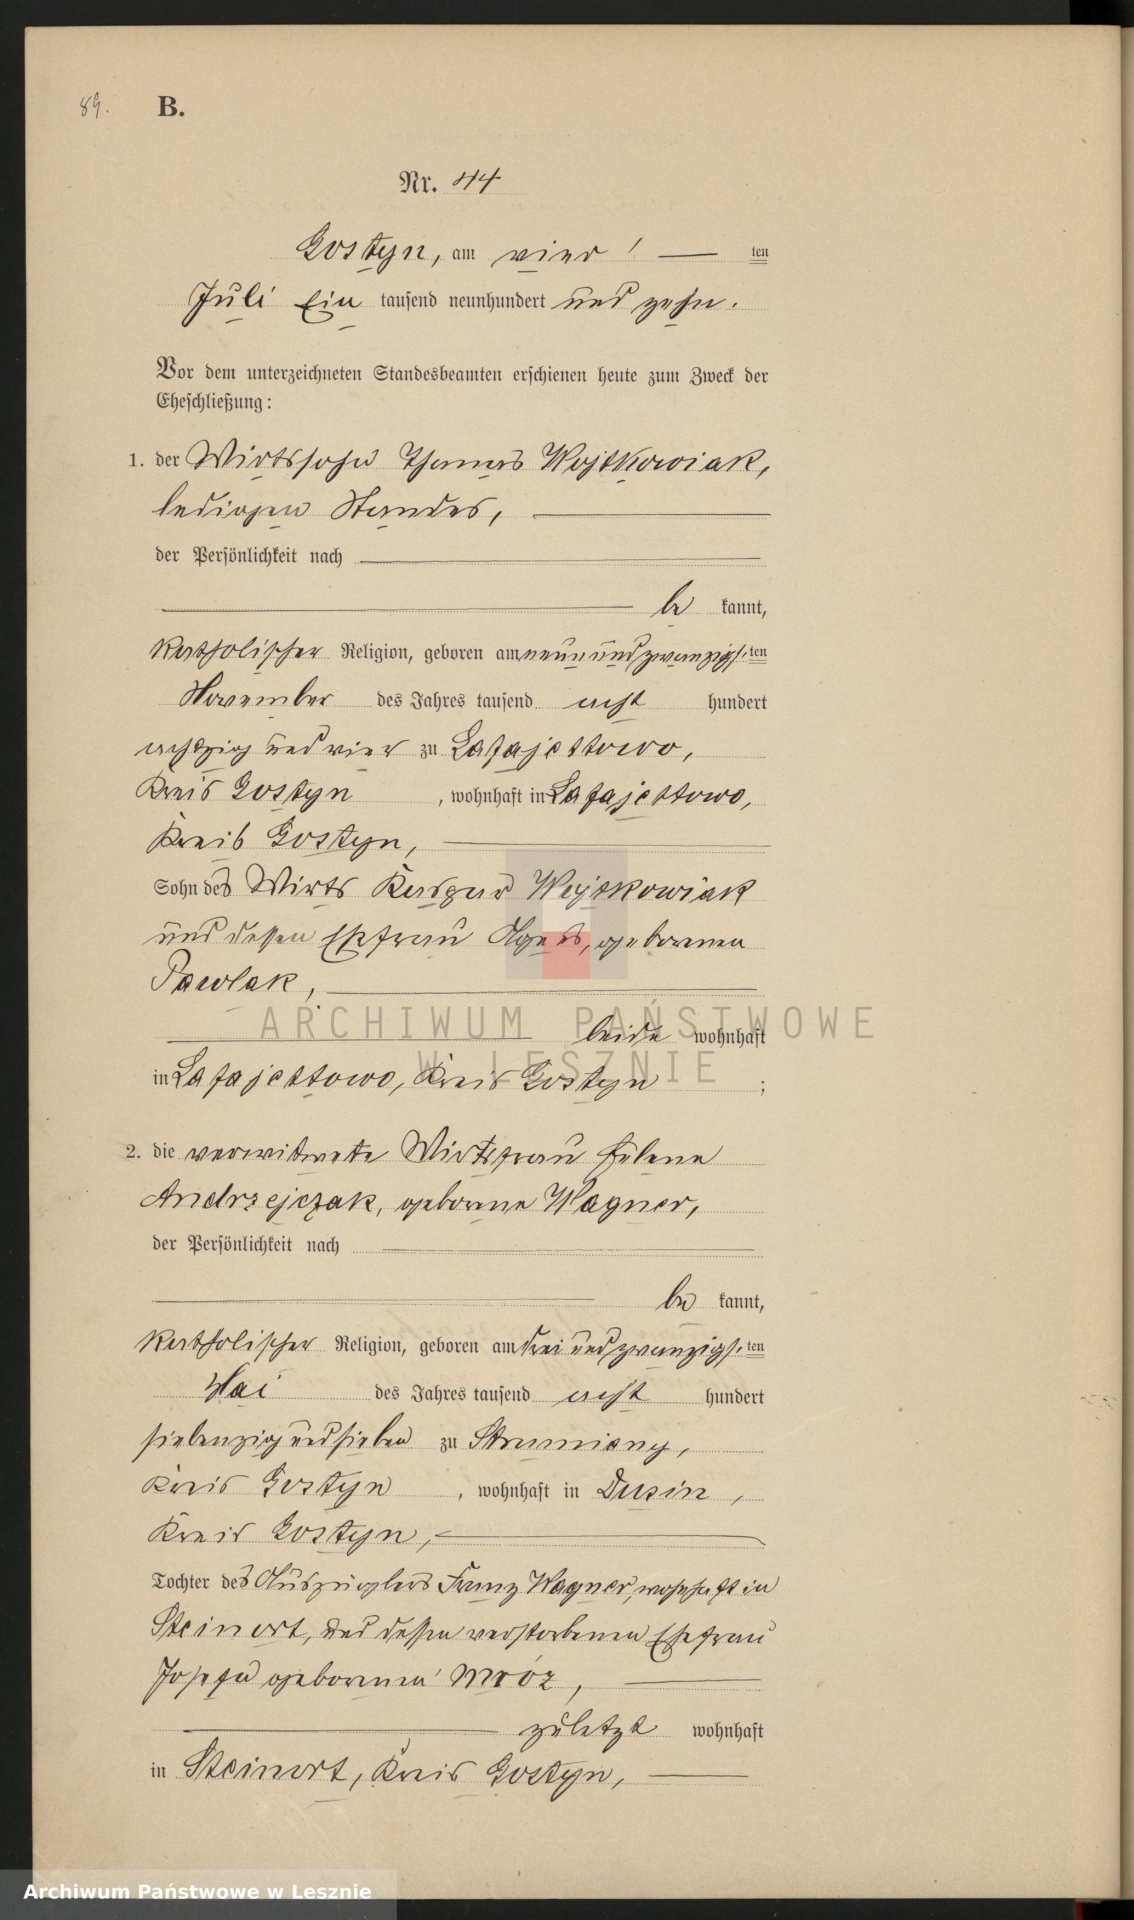 89. B.
Nr. 44
Gostyn, am vier ten
Juli Ein tausend neunhundert und zehn.
Vor dem unterzeichneten Standesbeamten erschienen heute zum Zweck der
Eheschließung:
1. der Wirtssohn Thomas Wojtkowiak,
ledigen Standes,
der Persönlichkeit nach
be kannt,
katholischer Religion, geboren am neunundzwanzigs. ten
November des Jahres tausend acht hundert
achtzig und vier zu Lafajettowo,
Kreis Gostyn, wohnhaft in Lafajettowo,
Kreis Gostyn,
Sohn des Wirts Kaspar Wojtkowiak
und dessen Ehefrau Agnes, geborenen
Pawlak,
beide wohnhaft
in Lafajettowo, Kreis Gostyn ;
2. die verwitwete Wirtsfrau Helene
Andrzejczak, geborene Wagner,
der Persönlichkeit nach
be kannt,
katholischer Religion, geboren am dreiundzwanzigs. ten
Mai des Jahres tausend acht hundert
siebenzig und sieben zu Strumiany,
Kreis Gostyn, wohnhaft in Dusin,
Kreis Gostyn,
Tochter des Auszüglers Franz Wagner, wohnhaft in
Steinort, und dessen verstorbenen Ehefrau
Josefa geborenen Mróz,
zuletzt wohnhaft
in Steinort, Kreis Gostyn,
ARCHIWUM PAŃSTWOWE
W LESZNIE
Archiwum Państwowe w Lesznie